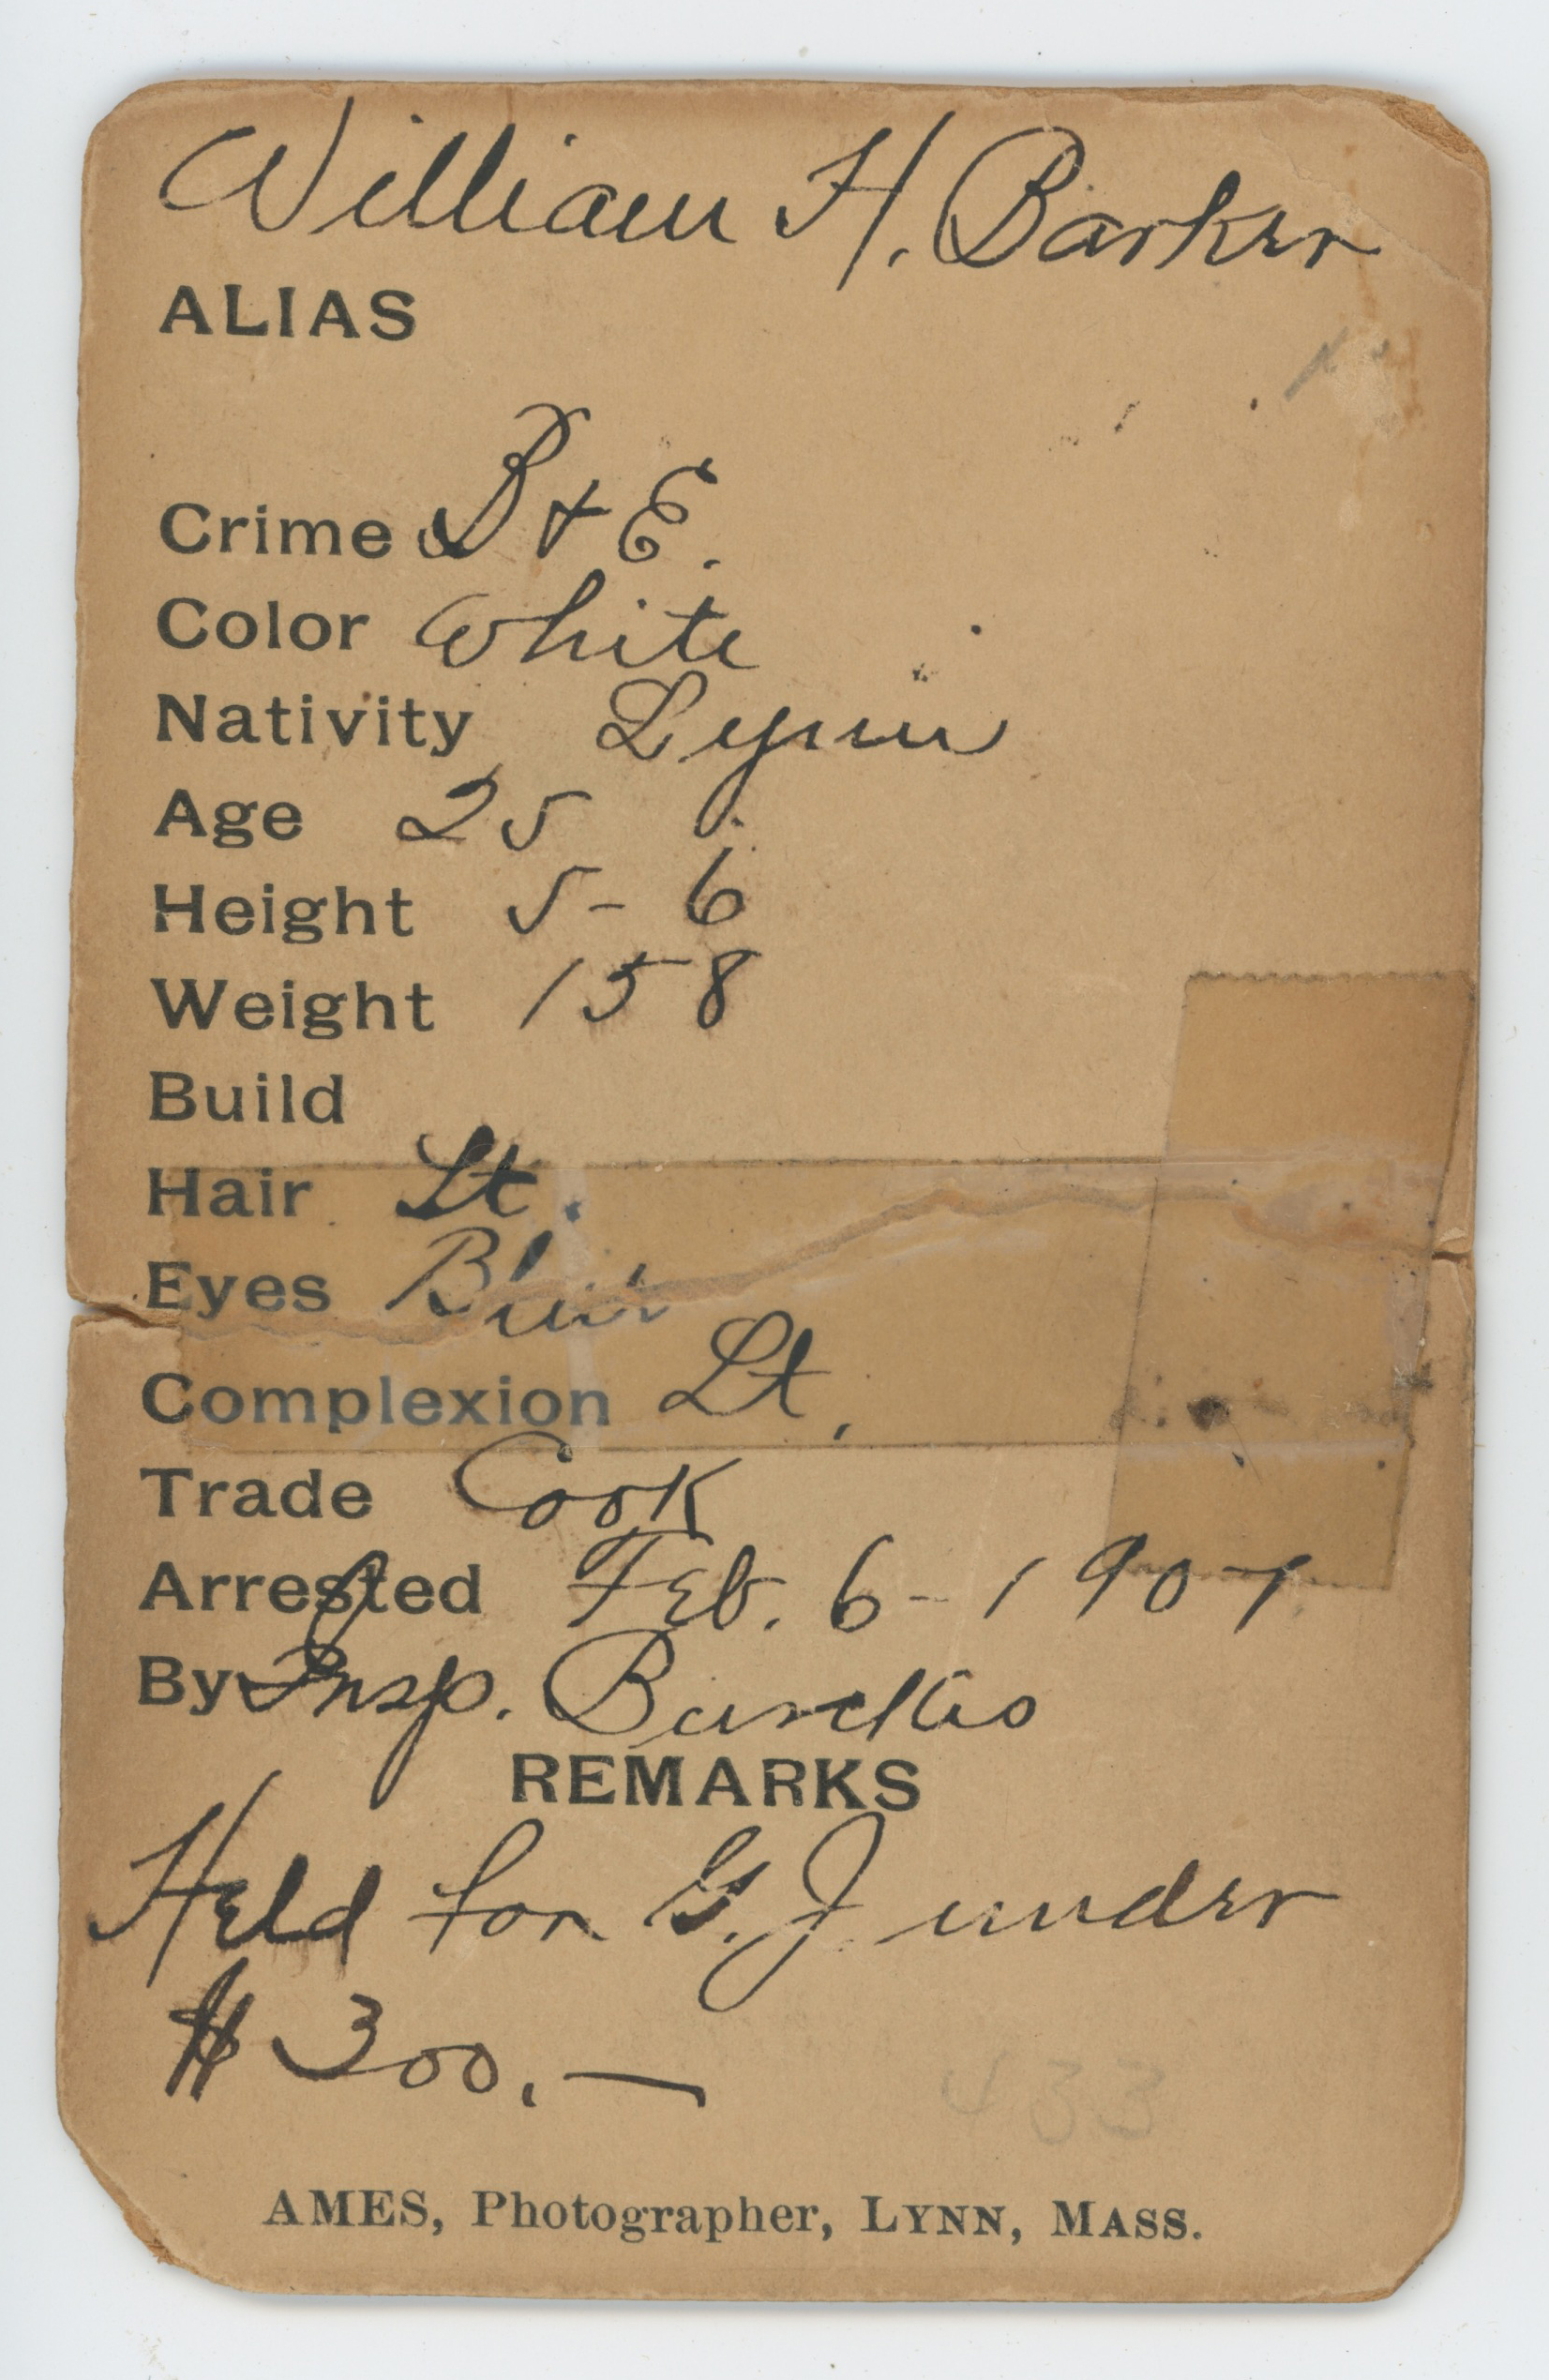 William H. Barker
ALIAS
Crime B & E.
Color White
Nativity Lynn
Age 25
Height 5-6
Weight 158
Build
Hair Lt.
Eyes Blue
Complexion Lt.
Trade Cook
Arrested Feb. 6-1907
By Insp.
REMARKS
Held for G.J. under
$300.—
433
AMES, Photographer, LYNN, MASS.